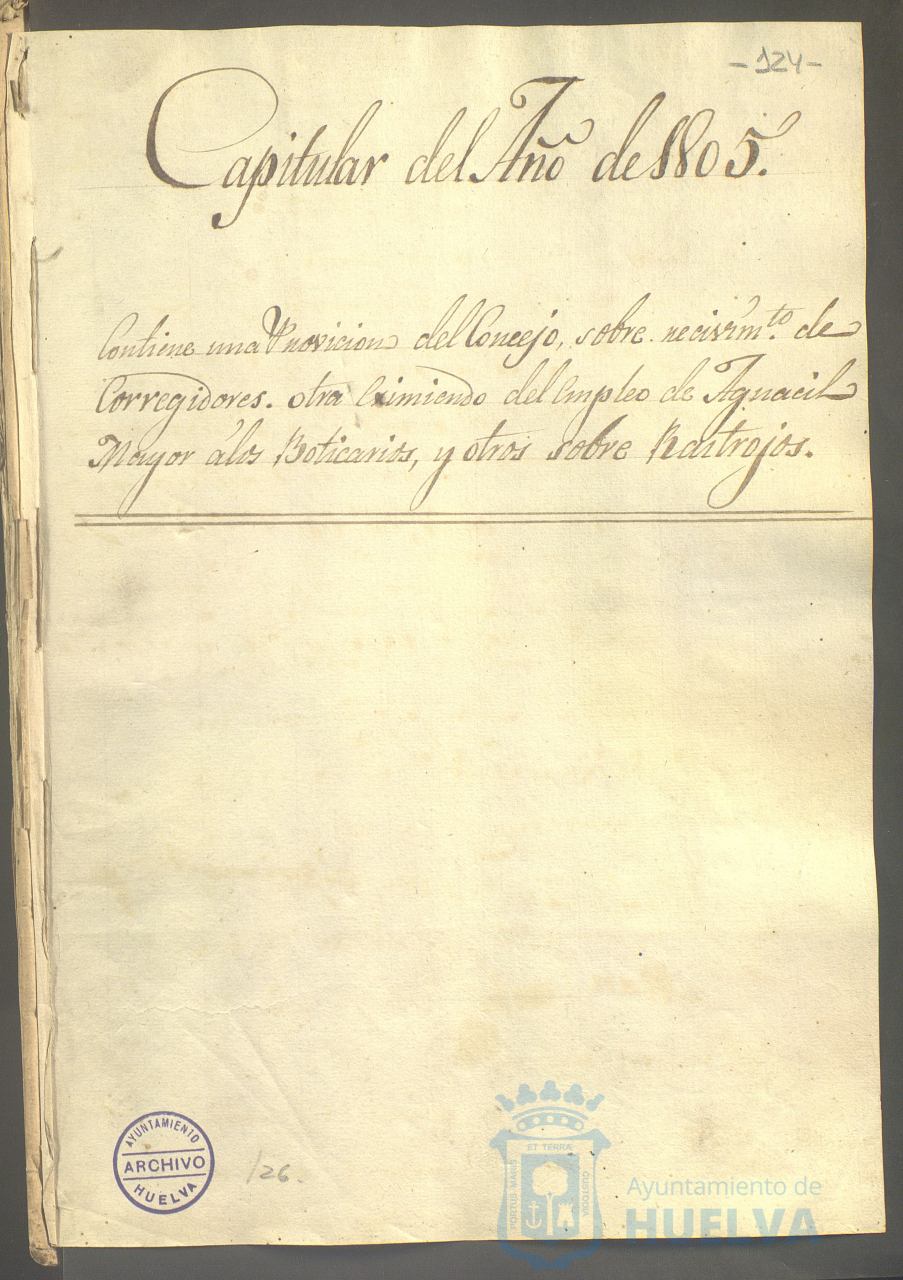 - 124 -
Capitular del Año de 1805.
Contiene una Provicion del Concejo, sobre recivim.to de
Corregidores. otra Eximiendo del Empleo de Aguacil
Mayor á los Boticarios, y otros sobre Rastrojos.
AYUNTAMIENTO
ARCHIVO
HUELVA
126.
ET TERRA
PORTUS MARIS
CUSTODIA
Ayuntamiento de
HUELVA